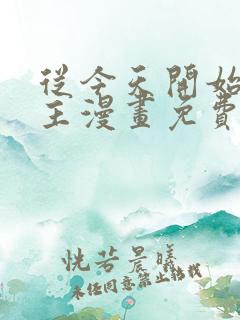 從今天開始
王漫畫免費
恍若晨曦
未經同意禁止轉載